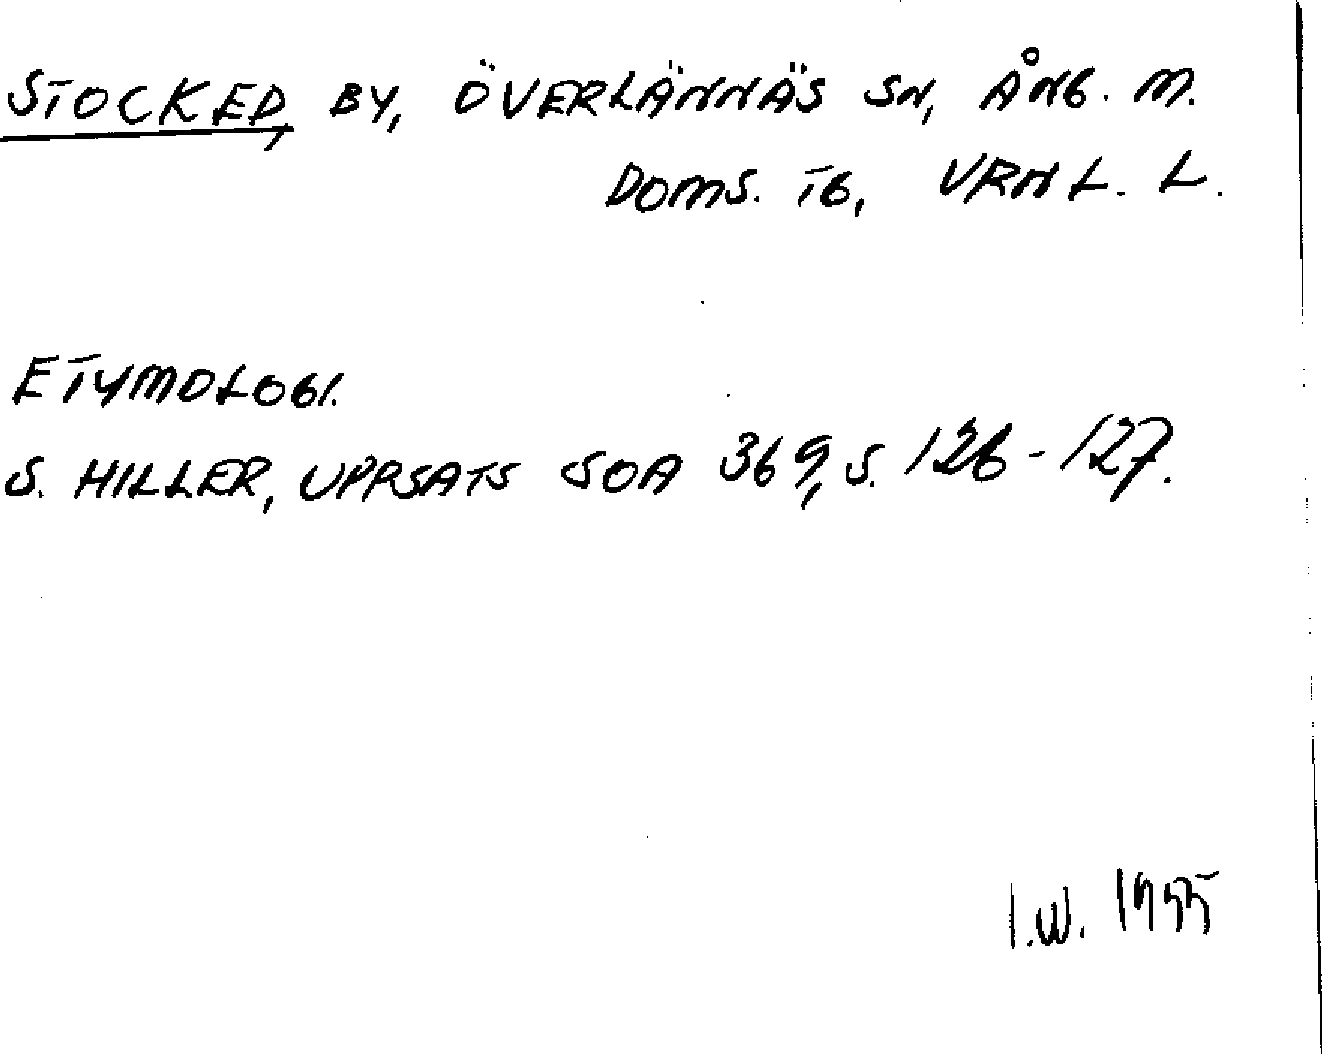 STOCKED, BY, ÖVERLÄNNÄS SN, ÅNG. M.
DOMS. TG, VRNL. L.
ETYMOLOGI.
S. HILLER, UPPSATS SOA 369, S. 126-127.
I.W. 1955